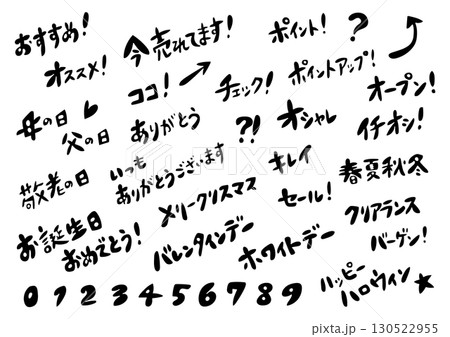 おすすめ!
オススメ!
今売れてます!
ココ!
ポイント!
?
ポイントアップ!
チェック!
オープン!
母の日
父の日
ありがとう
?!
オシャレ
イチオシ!
敬老の日
いつも
ありがとうございます
キレイ
春夏秋冬
メリークリスマス
セール!
クリアランス
バーゲン!
お誕生日
おめでとう!
バレンタインデー
ホワイトデー
ハッピー
ハロウィン
0 1 2 3 4 5 6 7 8 9
PIXTA
pixta.jp - 130522955